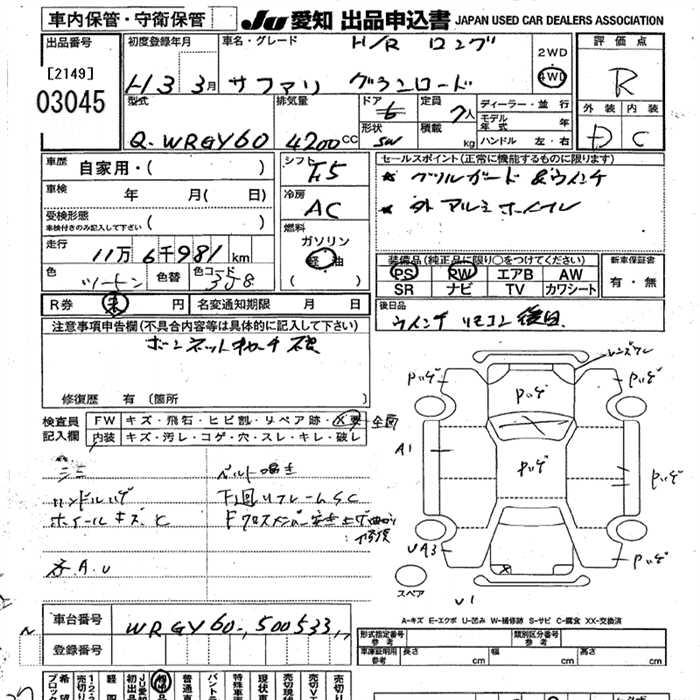 車内保管・守衛保管
JU 愛知 出品申込書 JAPAN USED CAR DEALERS ASSOCIATION
出品番号
[2149]
03045
初度登録年月
H3 3月
車名・グレード
H/R ロング
サファリ グランロード
2WD
4WD
評価点
R
外装 内装
D C
型式
Q-WRGY60
排気量
4200CC
ドア
5
形状
SW
定員
7人
積載
kg
ディーラー・並 行
モデル年式 年
ハンドル 左・右
車歴
自家用・( )
車検
年 月( 日)
受検形態
車検付きのみ記入して下さい ( )
走行
11万6千981km
色
ツートン
色替
色コード
3J8
シフト
F5
冷房
AC
燃料
ガソリン
軽油
( )
セールスポイント(正常に機能するものに限ります)
* グリルガード &ウインチ
* 外アルミホイール
装備品(純正品に限り○をつけてください)
PS PW エアB AW
SR ナビ TV カワシート
新車保証書
有・無
R券 未 円
名変通知期限 月 日
後日品
ウインチ リモコン 後日
注意事項申告欄(不具合内容等は具体的に記入して下さい)
ボンネットキャッチ
修復歴 有 〔箇所 〕
検査員記入欄
FW キズ・飛石・ヒビ割・リペア跡・X要
内装 キズ・汚レ・コゲ・穴・スレ・キレ・破レ
全面
ベルト鳴き
ハンドルハゲ
下回リフレームSC
ホイールキズ C
A.U
レンズワレ
Pハゲ
Pハゲ
Pハゲ
Pハゲ
Pハゲ
Pハゲ
A1
UA3
U1
X
スペア
A-キズ E-エクボ U-凹み W-補修跡 S-サビ C-腐食 XX-交換済
車台番号
WRGY60-500533
登録番号
形式指定番号
参考
類別区分番号
参考
車庫証明用
参考
長さ cm
幅 cm
高さ cm